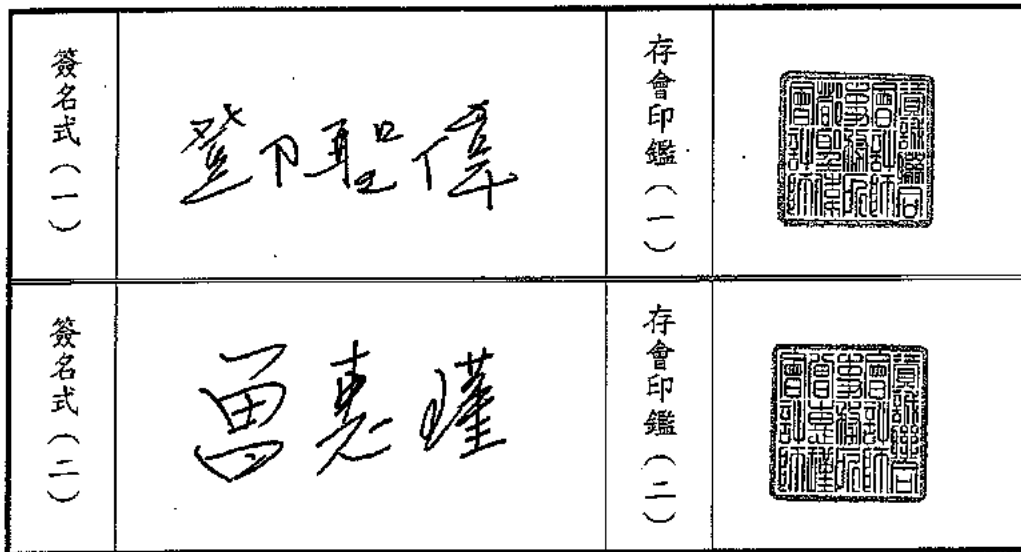 簽名式(一)
鄧聖偉
存會印鑑(一)
資誠聯合
會計師
事務所
鄧聖偉
會計師
簽名式(二)
曾惠瑾
存會印鑑(二)
資誠聯合
會計師
事務所
曾惠瑾
會計師